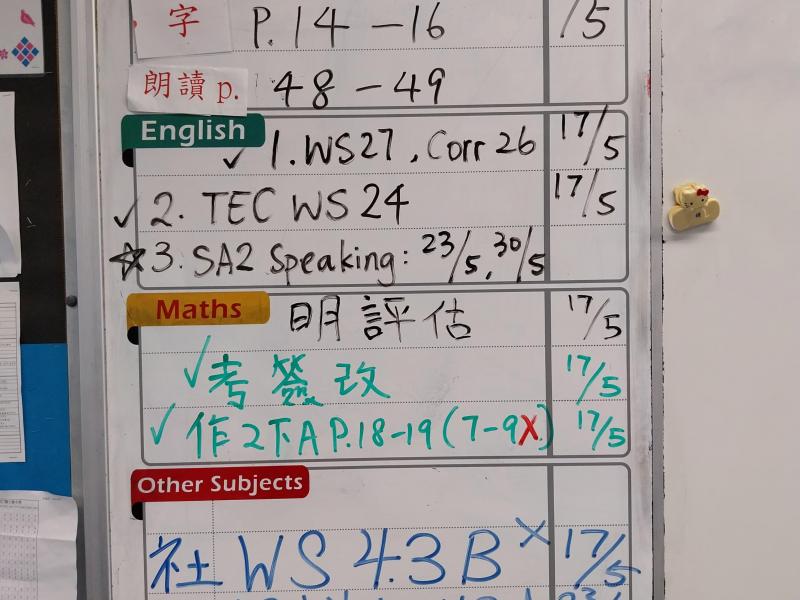 字 P.14-16 /5
朗讀 p. 48-49
English
✓ 1. WS27, Corr 26 17/5
✓ 2. TEC WS 24 17/5
☆ 3. SA2 Speaking: 23/5, 30/5
Maths
明評估 17/5
✓ 考簽改 17/5
✓ 作2下A P.18-19 (7-9X) 17/5
Other Subjects
社 WS 4.3B × 17/5